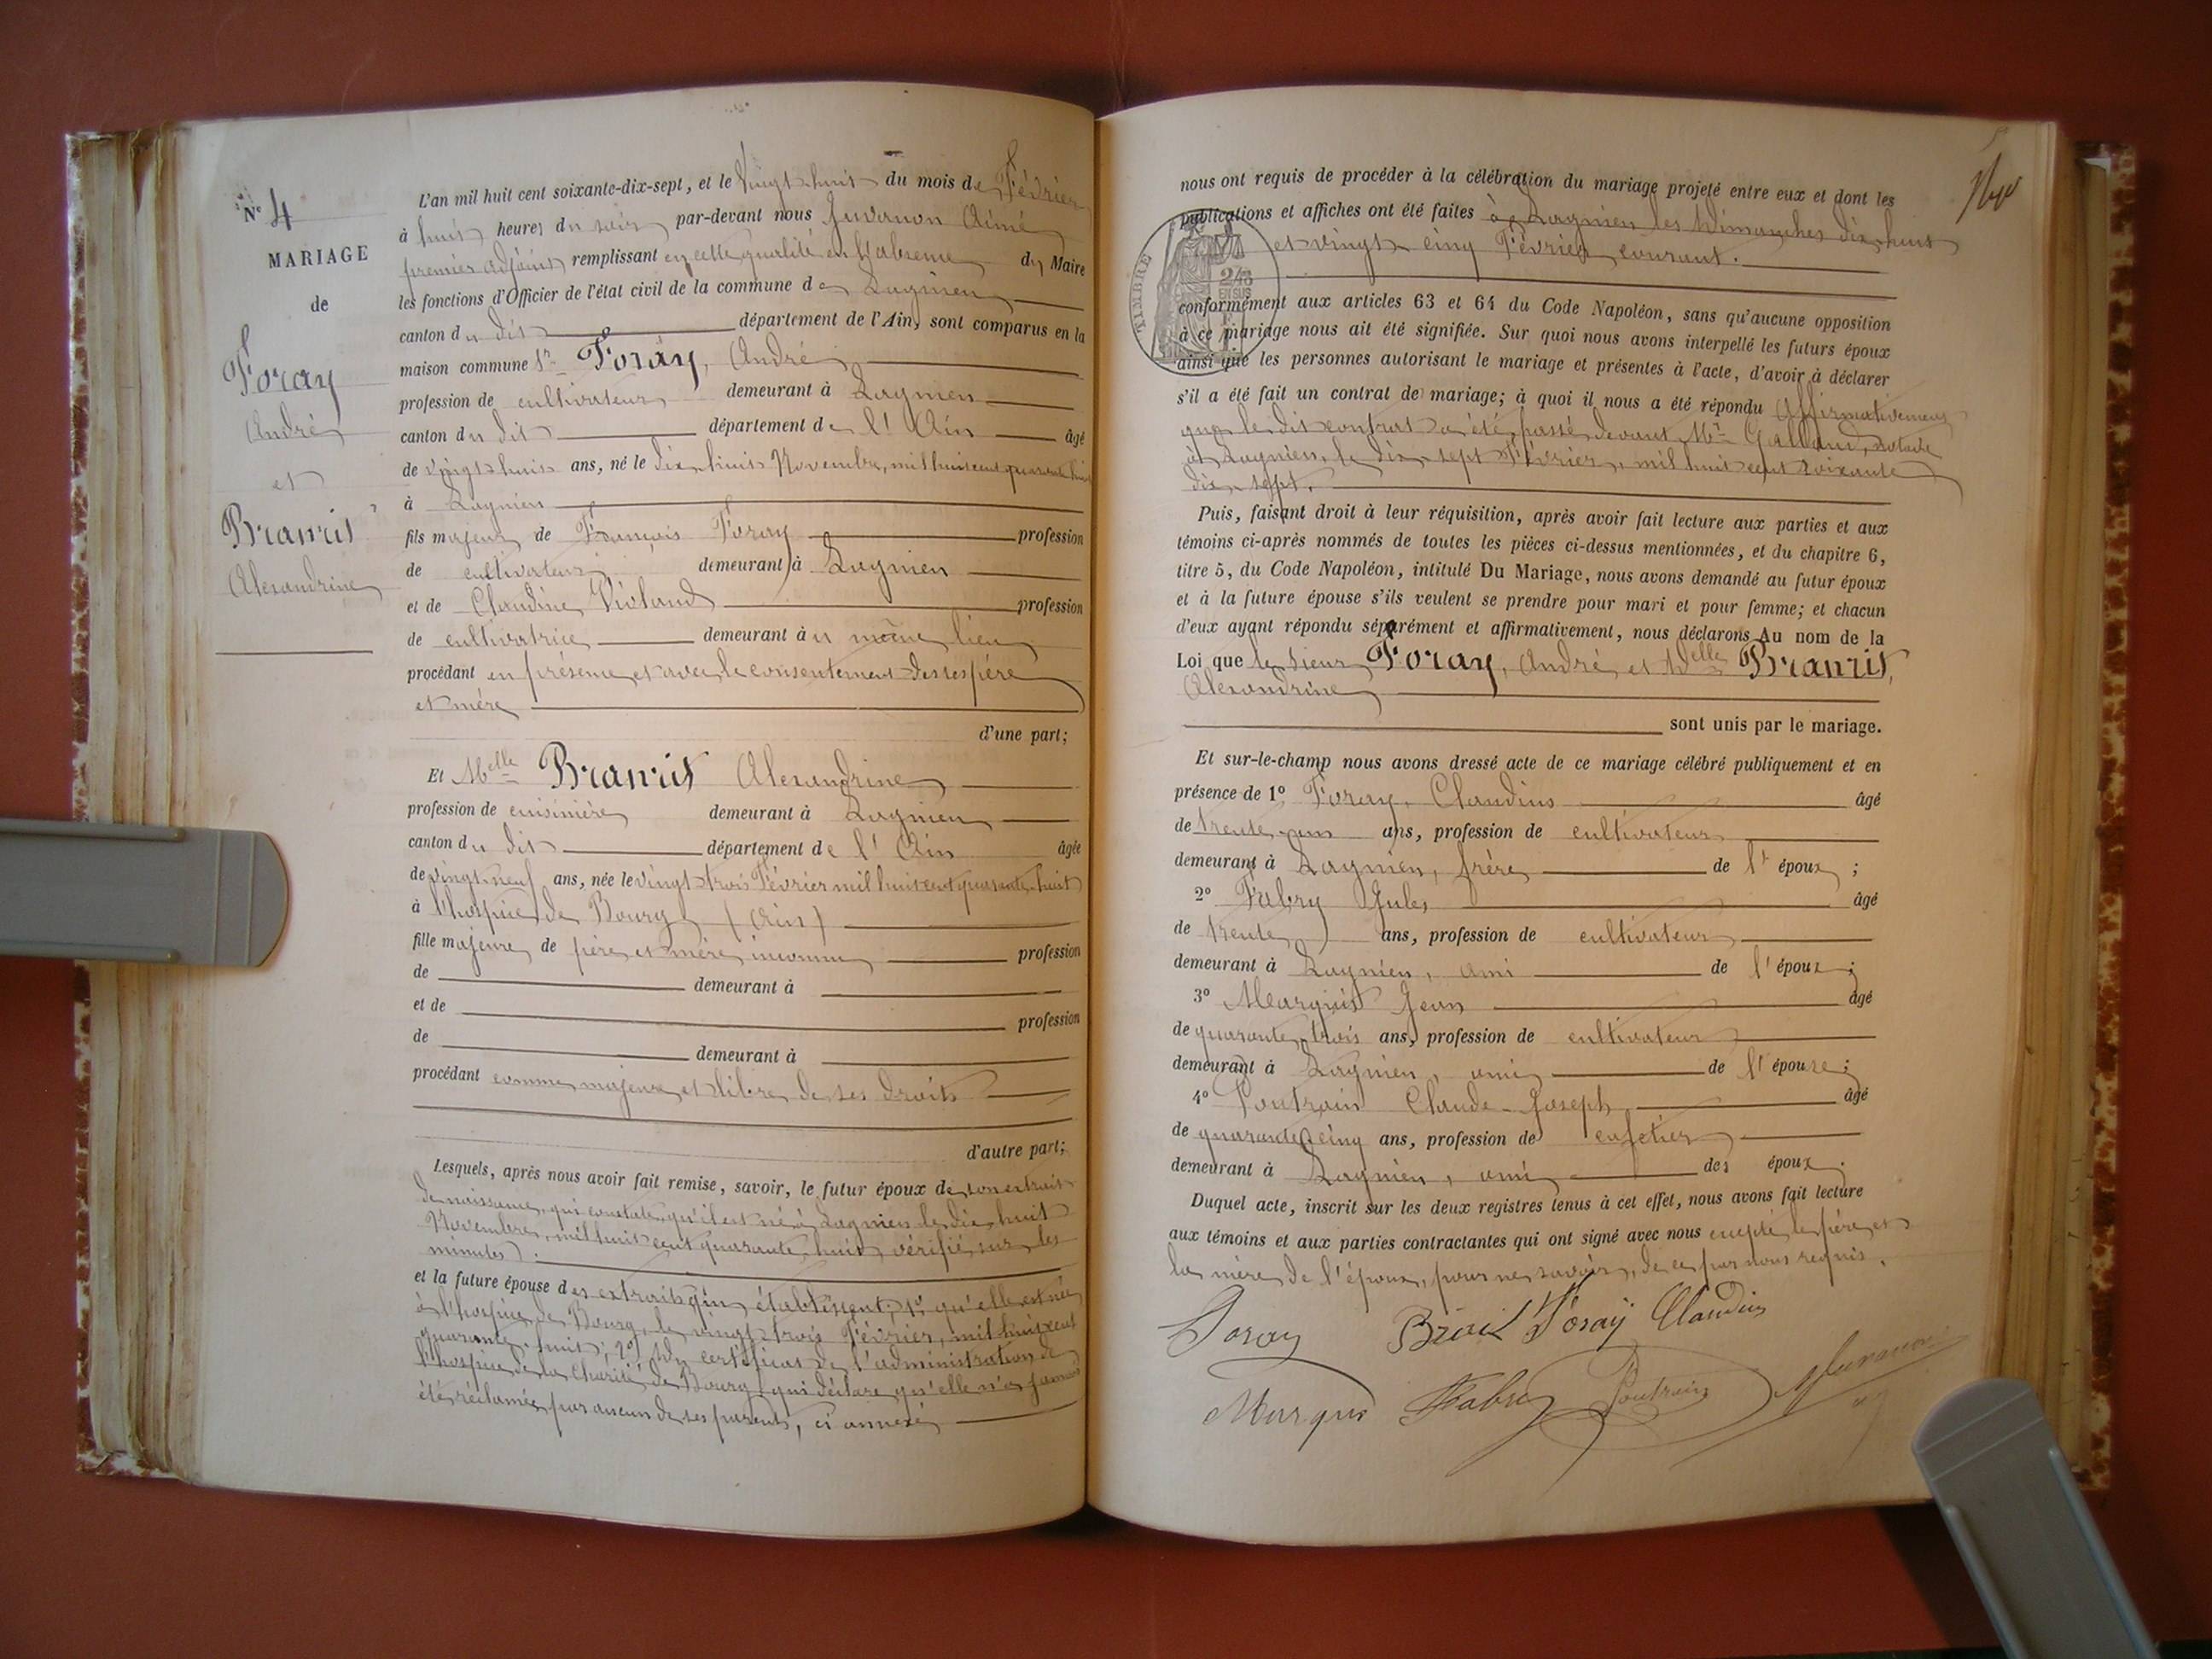 N° 4
MARIAGE
de
Foray
André
et
Branrit
Alexandrine
L'an mil huit cent soixante-dix-sept, et le vingt-huit du mois de Février
à huit heures du soir par-devant nous Juvanon Aimé
premier adjoint remplissant en cette qualité en l'absence du Maire
les fonctions d'Officier de l'état civil de la commune de Lagnieu
canton du dit département de l'Ain, sont comparus en la
maison commune Sr Foray, André
profession de cultivateur demeurant à Lagnieu
canton du dit département de l'Ain âgé
de vingt-huit ans, né le dix-huit Novembre, mil huit cent quarante huit
à Lagnieu
fils majeur de François Foray profession
de cultivateur demeurant à Lagnieu
et de Claudine Violand profession
de cultivatrice demeurant au même lieu
procédant en présence et avec le consentement de ses père
et mère
d'une part;
Et Melle Branrit Alexandrine
profession de cuisinière demeurant à Lagnieu
canton du dit département de l'Ain âgée
de vingt-neuf ans, née le vingt-trois Février mil huit cent quarante-huit
à l'hospice de Bourg (Ain)
fille majeure de père et mère inconnus profession
de demeurant à
et de profession
de demeurant à
procédant comme majeure et libre de ses droits
d'autre part;
Lesquels, après nous avoir fait remise, savoir, le futur époux de son extrait
de naissance, qui constate qu'il est né à Lagnieu le dix-huit
Novembre, mil huit cent quarante-huit, vérifié sur les
minutes).
et la future épouse des extraits qui établissent; 1° qu'elle est née
à l'hospice de Bourg, le vingt-trois Février, mil huit cent
quarante-huit; 2° du certificat de l'administration de
l'hospice de la Charité de Bourg qui déclare qu'elle n'a jamais
été réclamée par aucun de ses parents, ci annexé
nous ont requis de procéder à la célébration du mariage projeté entre eux et dont les
publications et affiches ont été faites à Lagnieu les Dimanches dix-huit
et vingt-cinq Février courant.
TIMBRE
2/10
EN SUS
conformément aux articles 63 et 64 du Code Napoléon, sans qu'aucune opposition
à ce mariage nous ait été signifiée. Sur quoi nous avons interpellé les futurs époux
ainsi que les personnes autorisant le mariage et présentes à l'acte, d'avoir à déclarer
s'il a été fait un contrat de mariage; à quoi il nous a été répondu affirmativement
que le dit contrat a été passé devant Mr Galland, notaire
à Lagnieu, le dix-sept Février, mil huit cent soixante
dix-sept.
Puis, faisant droit à leur réquisition, après avoir fait lecture aux parties et aux
témoins ci-après nommés de toutes les pièces ci-dessus mentionnées, et du chapitre 6,
titre 5, du Code Napoléon, intitulé Du Mariage, nous avons demandé au futur époux
et à la future épouse s'ils veulent se prendre pour mari et pour femme; et chacun
d'eux ayant répondu séparément et affirmativement, nous déclarons Au nom de la
Loi que le sieur Foray, André et Delle Branrit,
Alexandrine
sont unis par le mariage.
Et sur-le-champ nous avons dressé acte de ce mariage célébré publiquement et en
présence de 1° Foray, Claudius âgé
de trente-un ans, profession de cultivateur
demeurant à Lagnieu, frère de l'époux;
2° Fabry Jules âgé
de trente ans, profession de cultivateur
demeurant à Lagnieu, ami de l'époux;
3° Marquis Jean âgé
de quarante-trois ans, profession de cultivateur
demeurant à Lagnieu, ami de l'épouse;
4° Poutrain Claude-Joseph âgé
de quarante-cinq ans, profession de cafetier
demeurant à Lagnieu, ami des époux.
Duquel acte, inscrit sur les deux registres tenus à cet effet, nous avons fait lecture
aux témoins et aux parties contractantes qui ont signé avec nous excepté le père et
la mère de l'époux, pour ne savoir, de ce par nous requis.
Foray Foray Claudius
Marquis Fabry Poutrain Juvanon